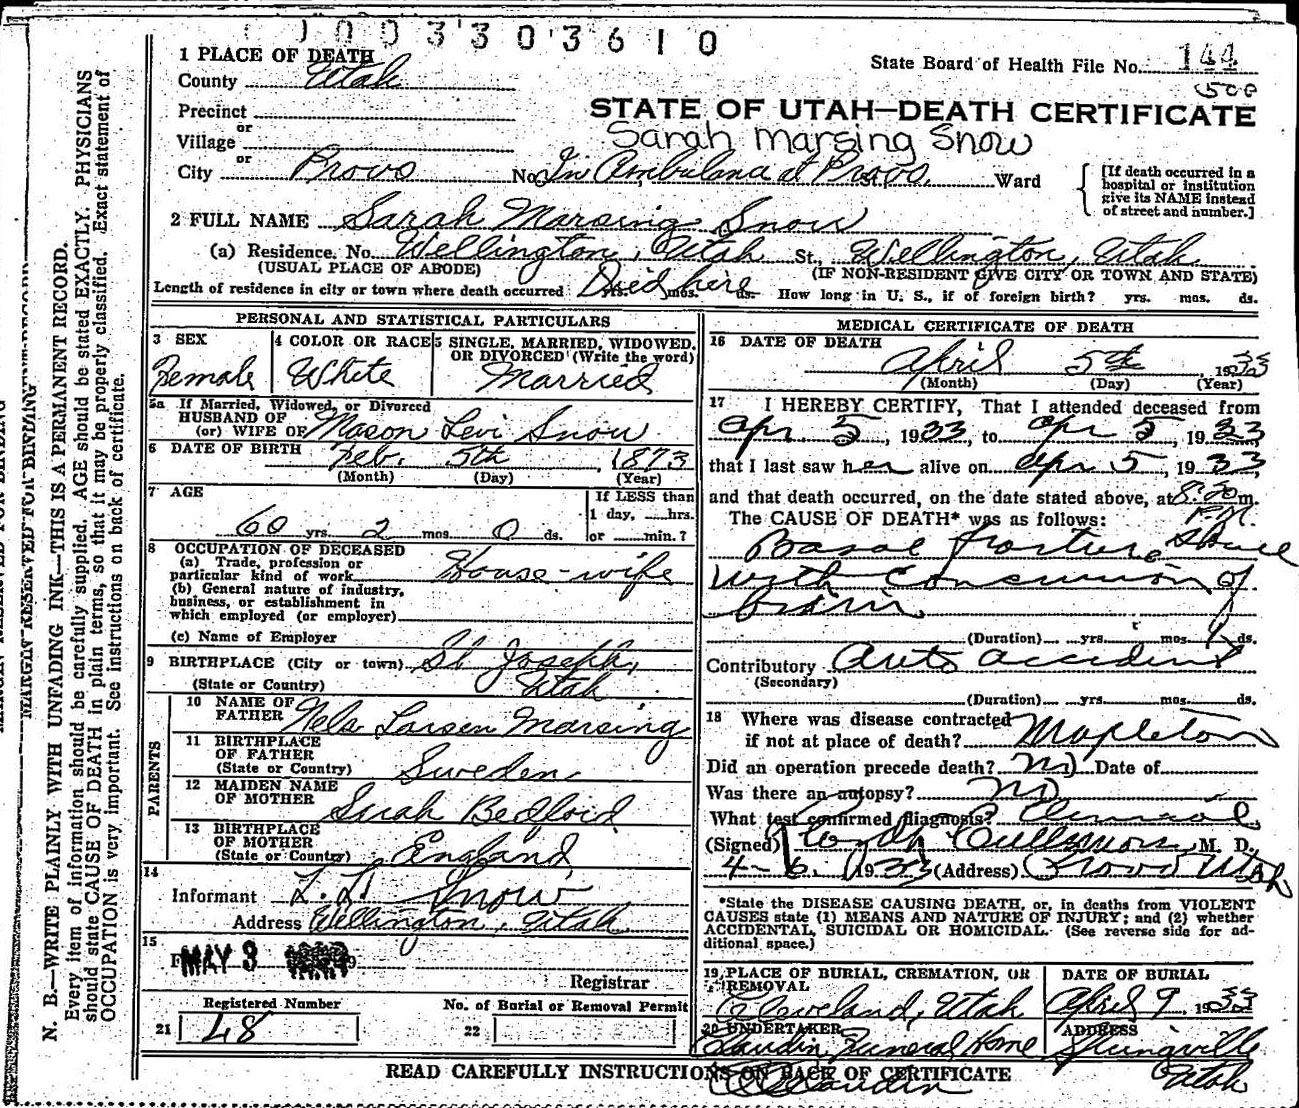 0 0 3 3 0 3 6 1 0
1 PLACE OF DEATH
State Board of Health File No. 144
County Utah
500
STATE OF UTAH—DEATH CERTIFICATE
Precinct
or
Sarah Marsing Snow
Village
or
City Provo No. In Ambulance at Provo St., Ward
[If death occurred in a hospital or institution give its NAME instead of street and number.]
2 FULL NAME Sarah Marsing Snow
(a) Residence. No. Wellington, Utah St., Wellington, Utah.
(USUAL PLACE OF ABODE) (IF NON-RESIDENT GIVE CITY OR TOWN AND STATE)
Length of residence in city or town where death occurred Died here yrs. mos. ds. How long in U. S., if of foreign birth? yrs. mos. ds.
PERSONAL AND STATISTICAL PARTICULARS
3 SEX
Female
4 COLOR OR RACE
White
5 SINGLE, MARRIED, WIDOWED, OR DIVORCED (Write the word)
Married
5a If Married, Widowed, or Divorced
HUSBAND OF
(or) WIFE OF Mason Levi Snow
6 DATE OF BIRTH Feb. 5th, 1873
(Month) (Day) (Year)
7 AGE
60 yrs. 2 mos. 0 ds.
If LESS than
1 day, ......hrs.
or ......min.?
8 OCCUPATION OF DECEASED
(a) Trade, profession or
particular kind of work House-wife
(b) General nature of industry,
business, or establishment in
which employed (or employer)
(c) Name of Employer
9 BIRTHPLACE (City or town) St Joseph,
(State or Country) Utah
PARENTS
10 NAME OF
FATHER Nels Larsen Marsing
11 BIRTHPLACE
OF FATHER
(State or Country) Sweden
12 MAIDEN NAME
OF MOTHER Sarah Bedford
13 BIRTHPLACE
OF MOTHER
(State or Country) England
14
Informant L. L. Snow
Address Wellington, Utah
15
MAY 3
Registrar
Registered Number
21 48
No. of Burial or Removal Permit
22
MEDICAL CERTIFICATE OF DEATH
16 DATE OF DEATH
April 5th, 1933
(Month) (Day) (Year)
17 I HEREBY CERTIFY, That I attended deceased from
Apr 5, 1933, to Apr 5, 1933
that I last saw her alive on Apr 5, 1933
and that death occurred, on the date stated above, at 8:20 m.
P.M.
The CAUSE OF DEATH* was as follows:
Basal fracture skull
with concussion of
brain
(Duration) yrs. mos. 1 ds.
Contributory Auto accident
(Secondary)
(Duration) yrs. mos. ds.
18 Where was disease contracted
if not at place of death? Mapleton
Did an operation precede death? No Date of
Was there an autopsy? No
What test confirmed diagnosis? Clinical
(Signed) Cullimore, M. D.
4-6, 1933 (Address) Provo Utah
*State the DISEASE CAUSING DEATH, or, in deaths from VIOLENT
CAUSES state (1) MEANS AND NATURE OF INJURY; and (2) whether
ACCIDENTAL, SUICIDAL OR HOMICIDAL. (See reverse side for ad-
ditional space.)
19 PLACE OF BURIAL, CREMATION, OR
REMOVAL
Cleveland, Utah
DATE OF BURIAL
April 9, 1933
20 UNDERTAKER
Claudin Funeral Home
ADDRESS
Springville
Utah
READ CAREFULLY INSTRUCTIONS ON BACK OF CERTIFICATE
Claudin
MARGIN RESERVED FOR BINDING
N. B.—WRITE PLAINLY WITH UNFADING INK—THIS IS A PERMANENT RECORD.
Every item of information should be carefully supplied. AGE should be stated EXACTLY. PHYSICIANS
should state CAUSE OF DEATH in plain terms, so that it may be properly classified. Exact statement of
OCCUPATION is very important. See instructions on back of certificate.